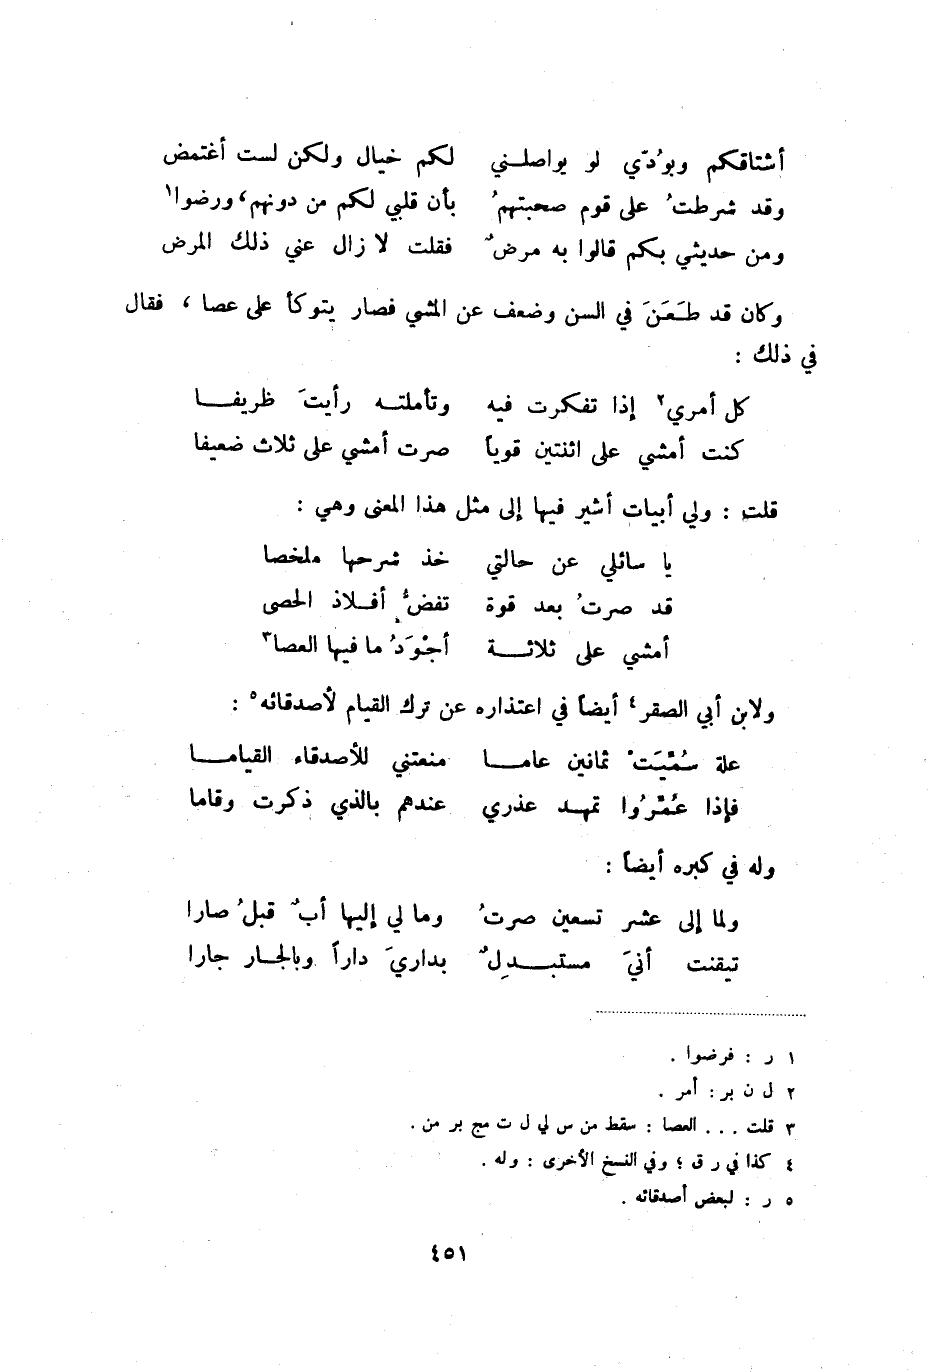 أشتاقكم وبودّي لو يواصلني لكم خيال ولكن لست أغتمض
وقد شرطتُ على قوم صحبتهمُ بأن قلبي لكم من دونهم، ورضوا١
ومن حديثي بكم قالوا به مرضٌ فقلت لا زال عني ذلك المرض
وكان قد طَعَنَ في السن وضعف عن المشي فصار يتوكأ على عصا ، فقال
في ذلك :
كل أمري٢ إذا تفكرت فيه وتأملته رأيتَ ظريفا
كنت أمشي على اثنتين قوياً صرت أمشي على ثلاث ضعيفا
قلت : ولي أبيات أشير فيها إلى مثل هذا المعنى وهي :
يا سائلي عن حالتي خذ شرحها ملخصا
قد صرتُ بعد قوة تفضُّ أفلاذ الحصى
أمشي على ثلاثة أجْوَدُ ما فيها العصا٣
ولابن أبي الصقر٤ أيضاً في اعتذاره عن ترك القيام لأصدقائه٥ :
علة سُمّيَتْ ثمانين عاما منعتني للأصدقاء القياما
فإذا عُمّرُوا تمهد عذري عندهم بالذي ذكرت وقاما
وله في كبره أيضاً :
ولما إلى عشر تسعين صرتُ وما لي إليها أبٌ قبلُ صارا
تيقنت أنيَ مستبدِلٌ بداريَ داراً وبالجار جارا
١ ر : فرضوا .
٢ ل ن بر : أمر .
٣ قلت . . . العصا : سقط من س لي ل ت مج بر من .
٤ كذا في ر ق ؛ وفي النسخ الأخرى : وله .
٥ ر : لبعض أصدقائه .
٤٥١